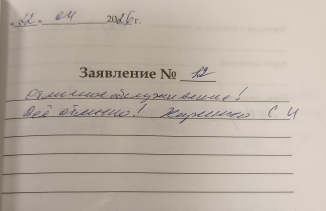 "22" 04 2026 г.
Заявление № 12
Отличное обслуживание!
Всё отлично! С. И